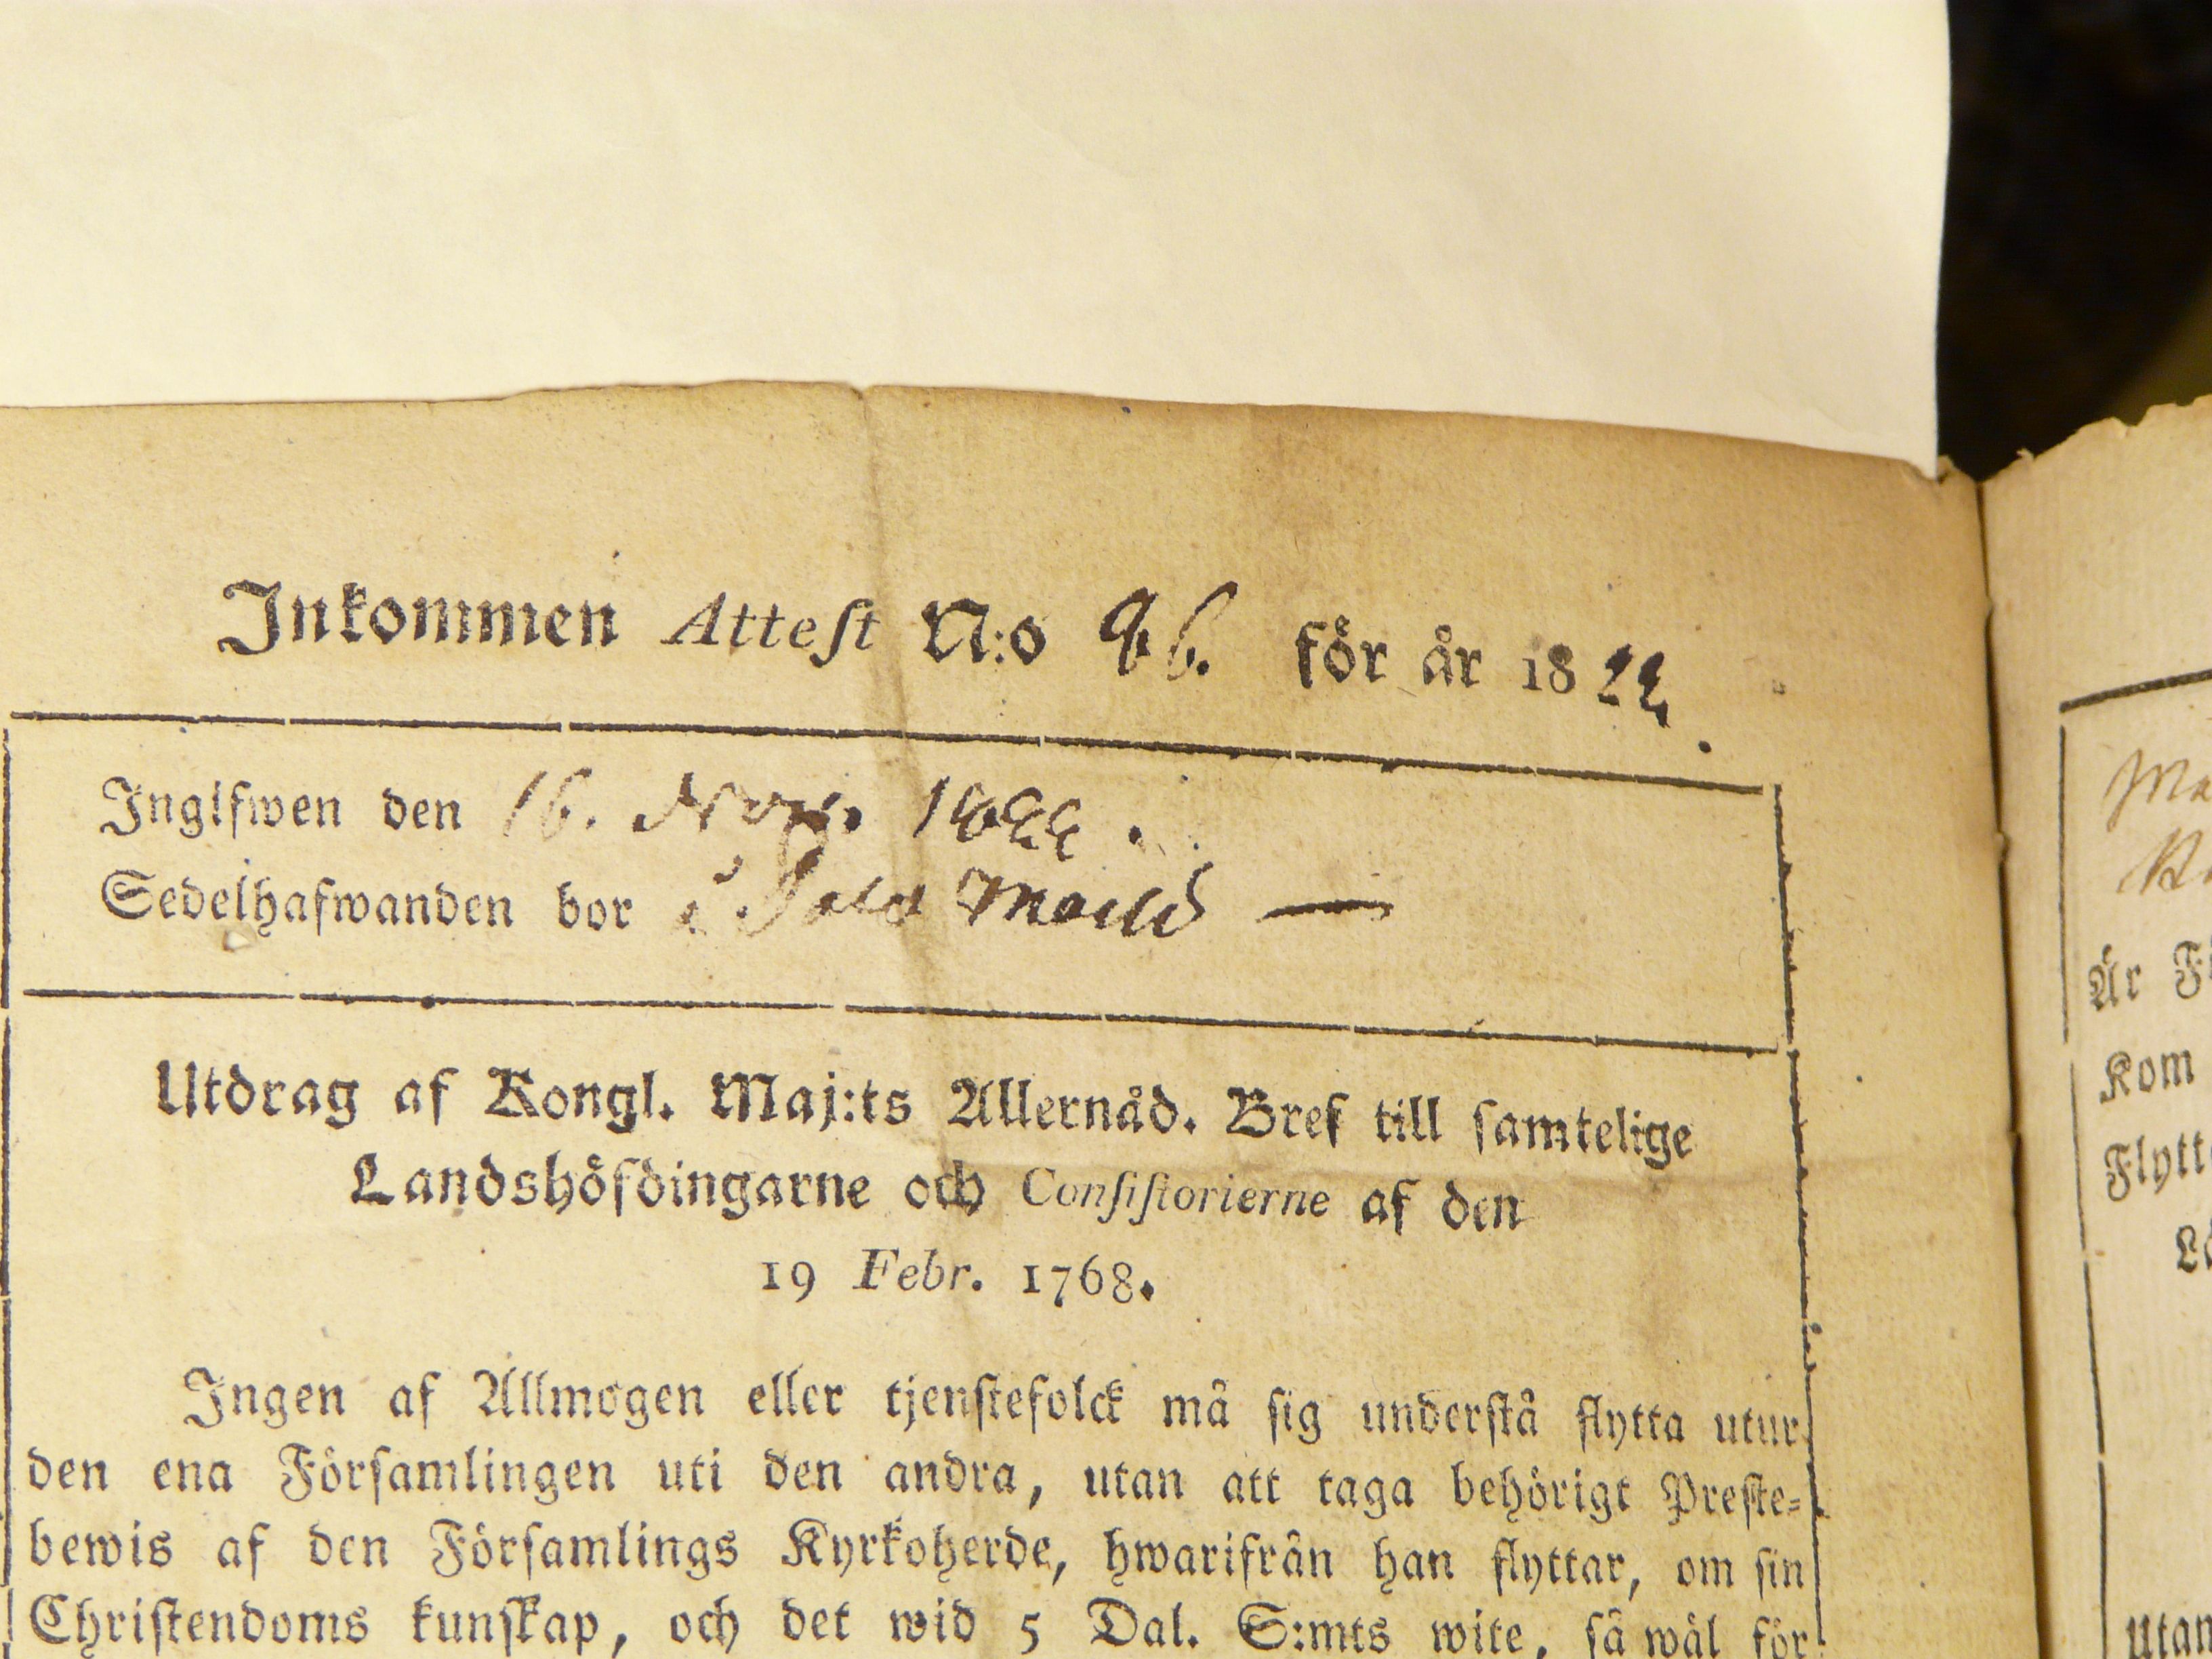 Inkommen Attest N:o 96. för år 1822.
Inglfwen den 16. Nov. 1822.
Sedelhafwanden bor i
Utdrag af Kongl. Maj:ts Allernåd. Bref till samtelige
Landshöfdingarne och Consistorierne af den
19 Febr. 1768.
Ingen af Allmogen eller tjenstefolck må sig understå flytta utur
den ena Församlingen uti den andra, utan att taga behörigt Preste=
bewis af den Församlings Kyrkoherde, hwarifrån han flyttar, om sin
Christendoms kunskap, och det wid 5 Dal. S:mts wite, så wäl för
Är
Kom
Flytt
utan